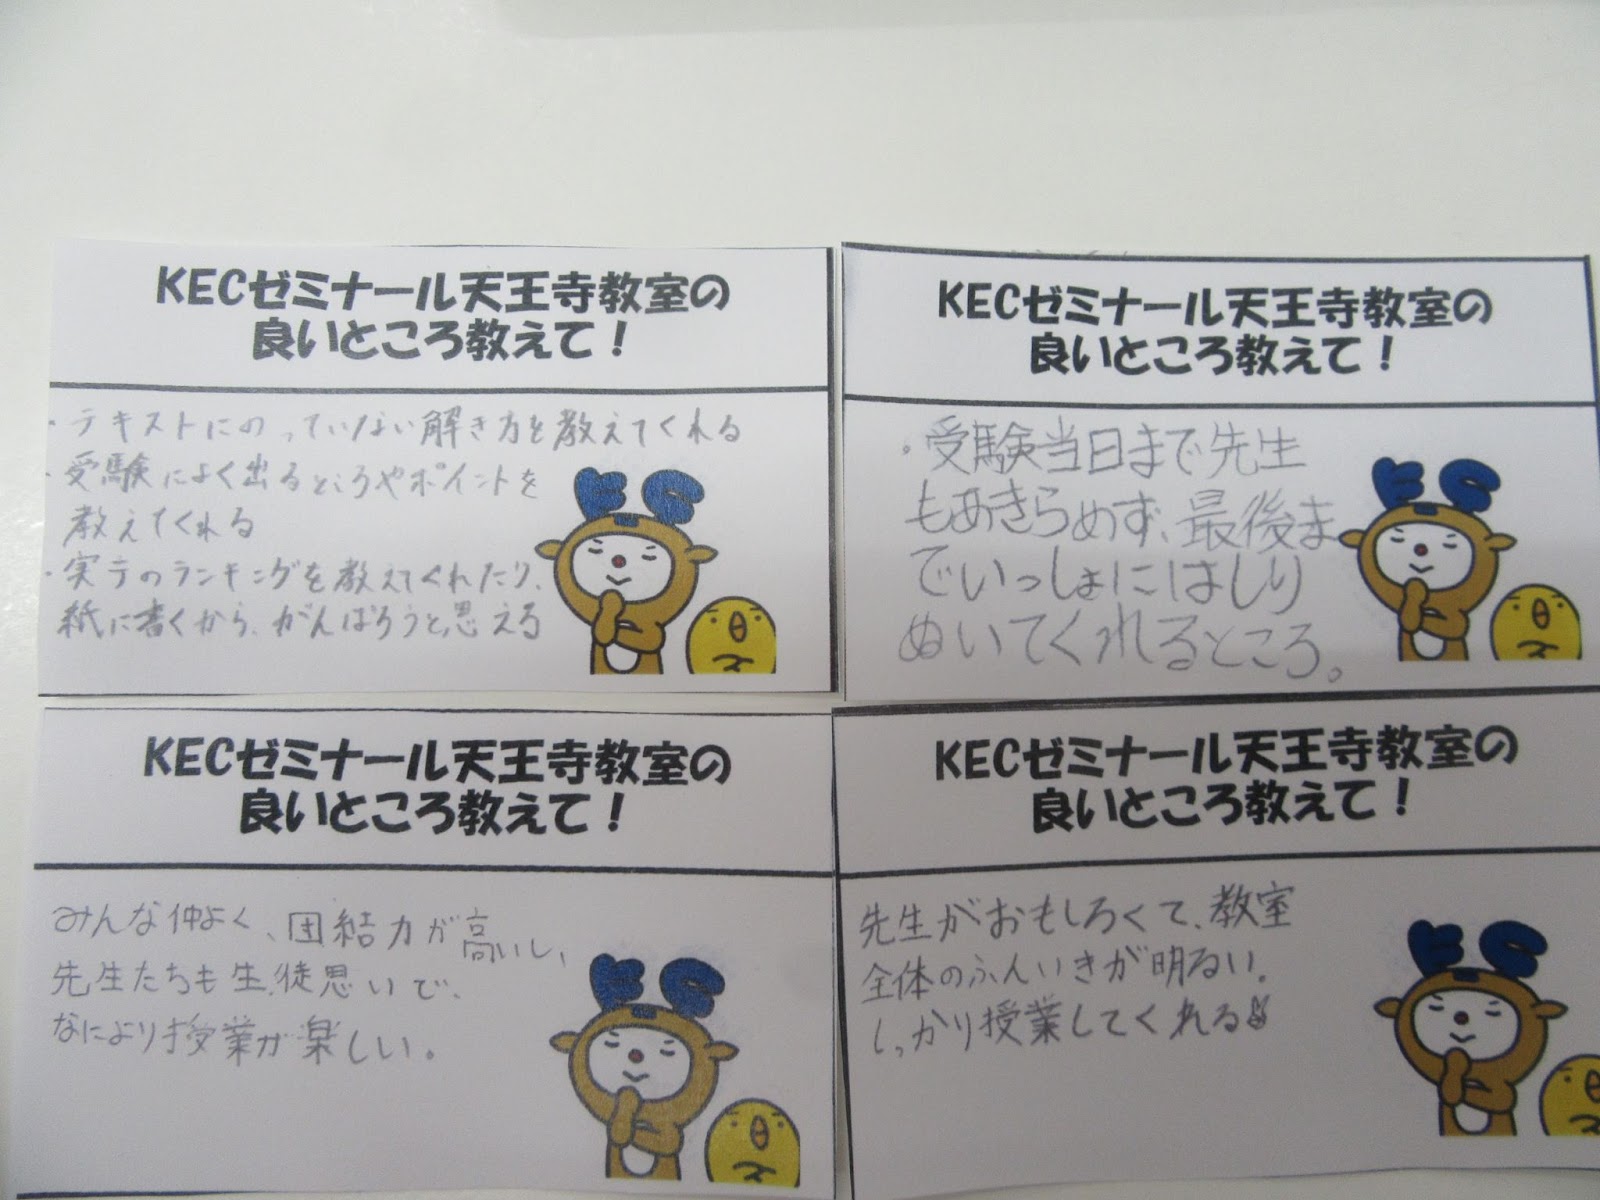 KECゼミナール天王寺教室の
良いところ教えて!
・テキストにのっていない解き方を教えてくれる
・受験によく出るところやポイントを
教えてくれる
・実テのランキングを教えてくれたり、
紙に書くから、がんばろうと思える
KECゼミナール天王寺教室の
良いところ教えて!
・受験当日まで先生
もあきらめず、最後ま
でいっしょにはしり
ぬいてくれるところ。
KECゼミナール天王寺教室の
良いところ教えて!
みんな仲よく、団結力が高いし、
先生たちも生徒思いで、
なにより授業が楽しい。
KECゼミナール天王寺教室の
良いところ教えて!
先生がおもしろくて、教室
全体のふんいきが明るい。
しっかり授業してくれる